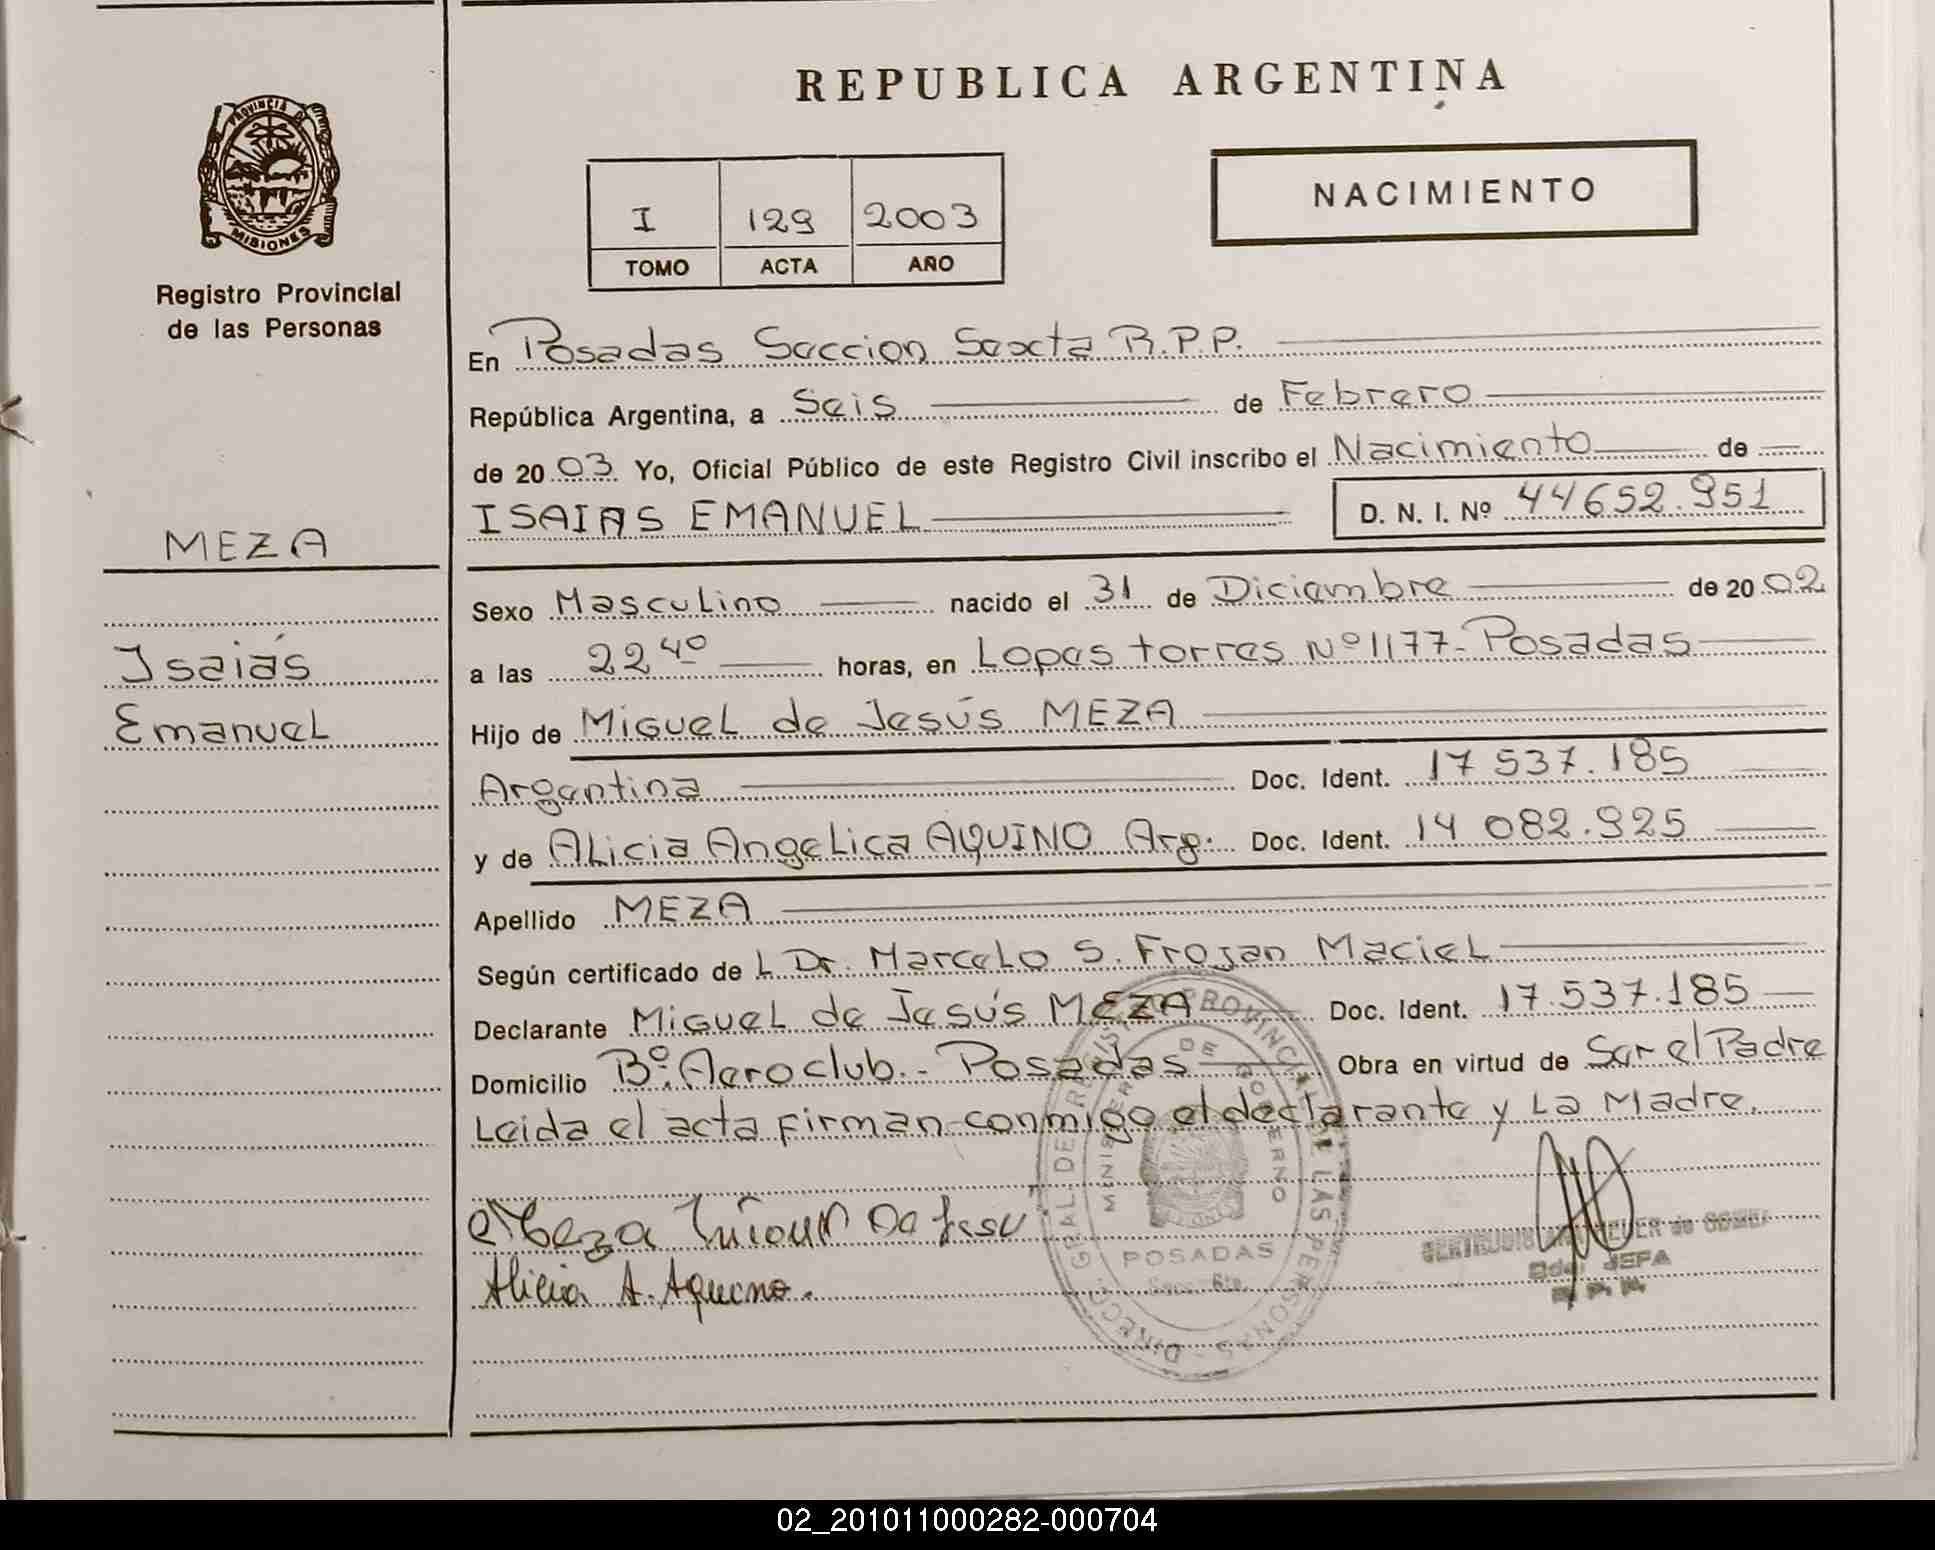 REPUBLICA ARGENTINA
PROVINCIA DE
MISIONES
Registro Provincial
de las Personas
I 129 2003
TOMO ACTA AÑO
NACIMIENTO
En Posadas Seccion Sexta R.P.P.
República Argentina, a Seis de Febrero
de 20 03 Yo, Oficial Público de este Registro Civil inscribo el Nacimiento de
ISAIAS EMANUEL D. N. I. Nº 44652.951
MEZA
Isaiás
Emanuel
Sexo Masculino nacido el 31 de Diciembre de 20 02
a las 22 40 horas, en Lopes torres Nº 1177- Posadas
Hijo de Miguel de Jesús MEZA
Argentina Doc. Ident. 17 537.185
y de Alicia Angelica AQUINO Arg. Doc. Ident. 14 082.925
Apellido MEZA
Según certificado de L Dr. Marcelo S. Frojan Maciel
Declarante Miguel de Jesús MEZA Doc. Ident. 17.537.185
Domicilio Bº. Aeroclub.- Posadas Obra en virtud de Ser el Padre
Leida el acta firman conmigo el declarante y La Madre.
Meza Miguel De Jesu
Alicia A. Aquino.
POSADAS
JEFA
02_201011000282-000704